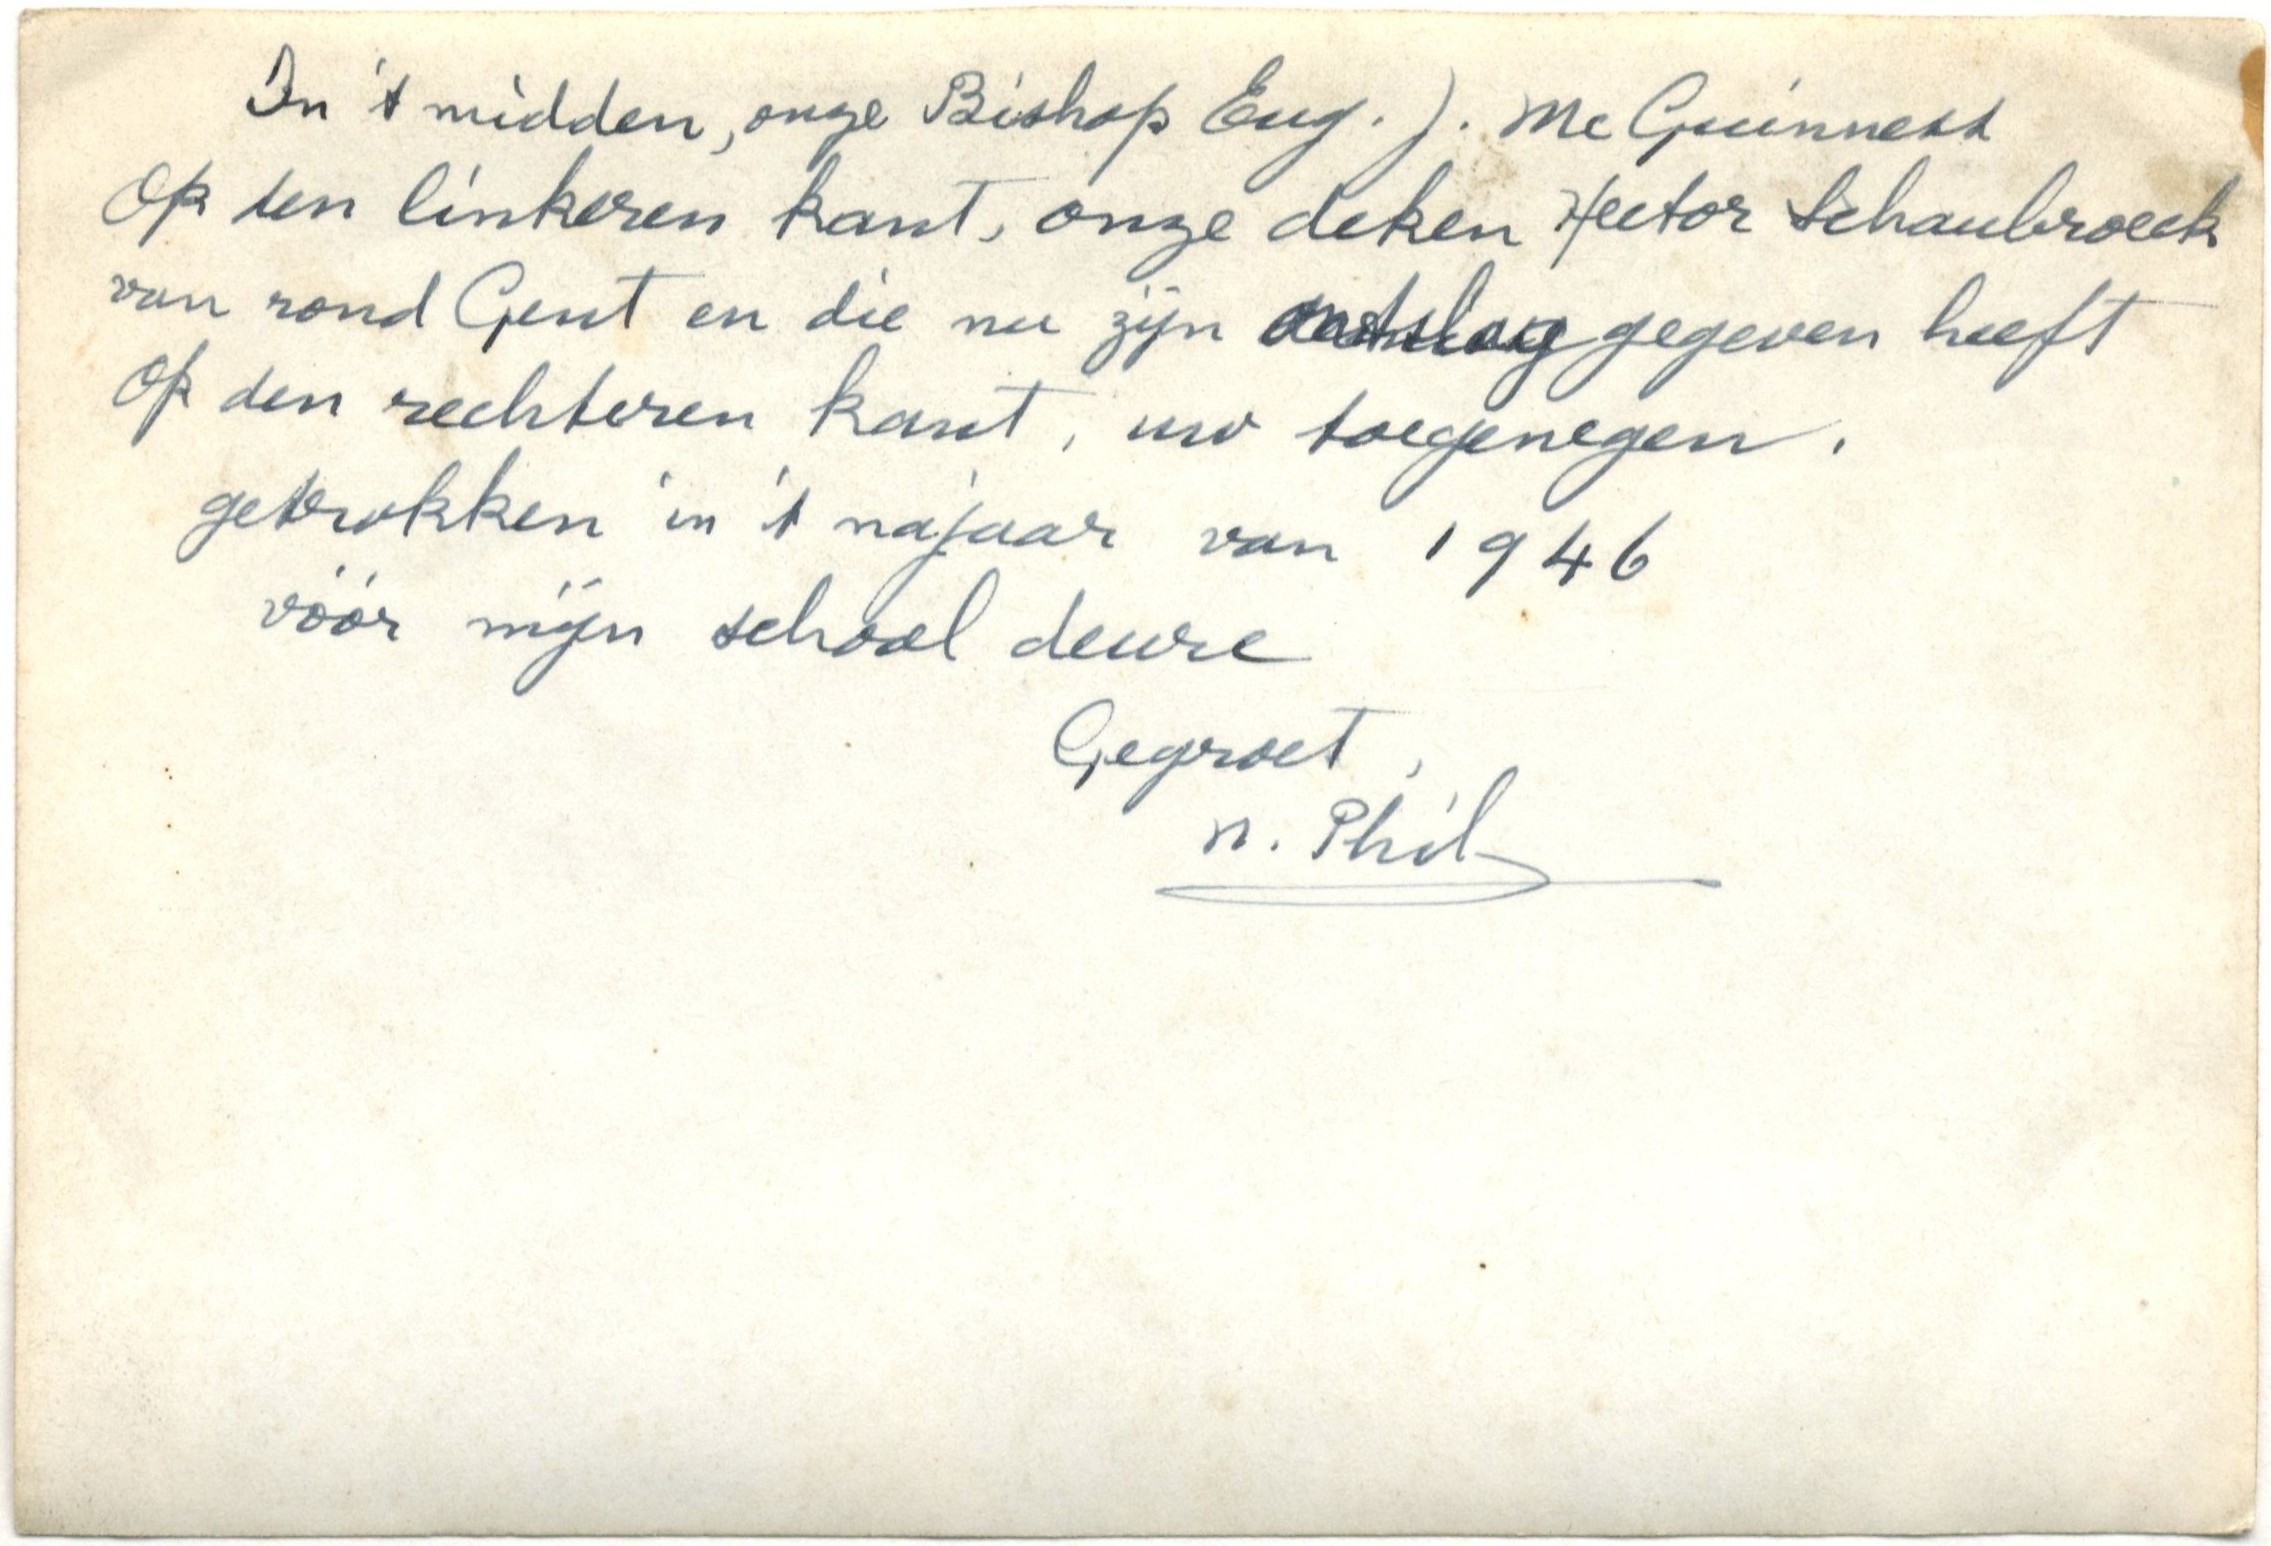 In 't midden, onze Bishop Eug. J. Mc Guinness
Op den linkeren kant, onze deken Hector Schaubroeck
van rond Gent en die nu zijn ontslag gegeven heeft
Op den rechteren kant, uw toegenegen.
getrokken in 't najaar van 1946
vóór mijn school deure
Gegroet,
N. Phil